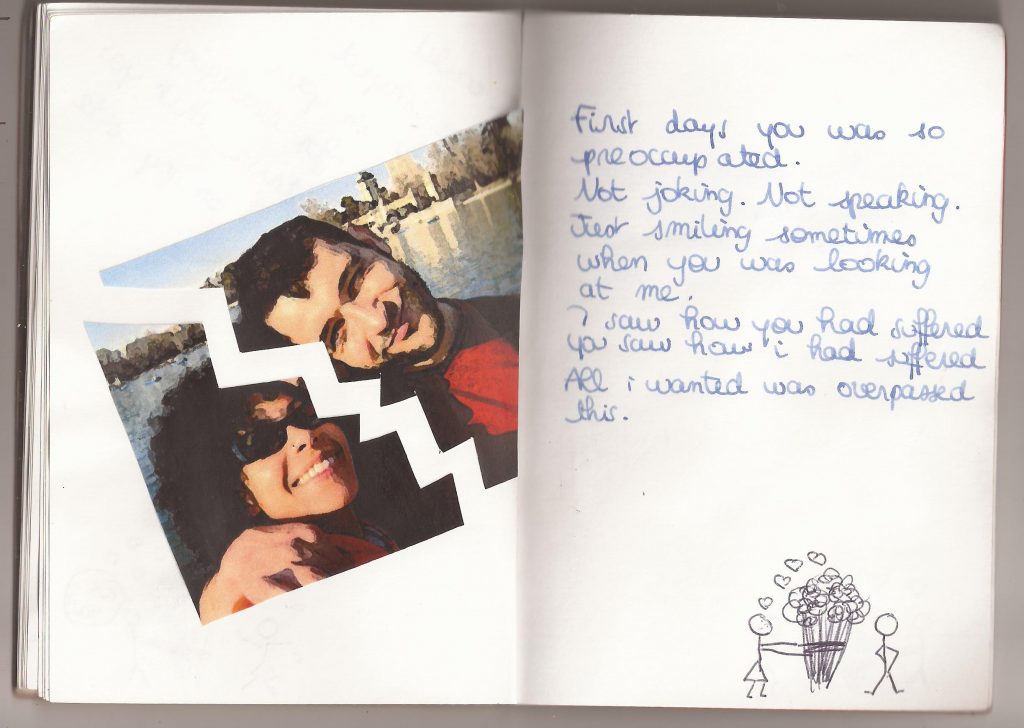 First days you was so
preoccupated.
Not joking. Not speaking.
Just smiling sometimes
when you was looking
at me.
I saw how you had suffered
you saw how i had suffered
All i wanted was overpassed
this.